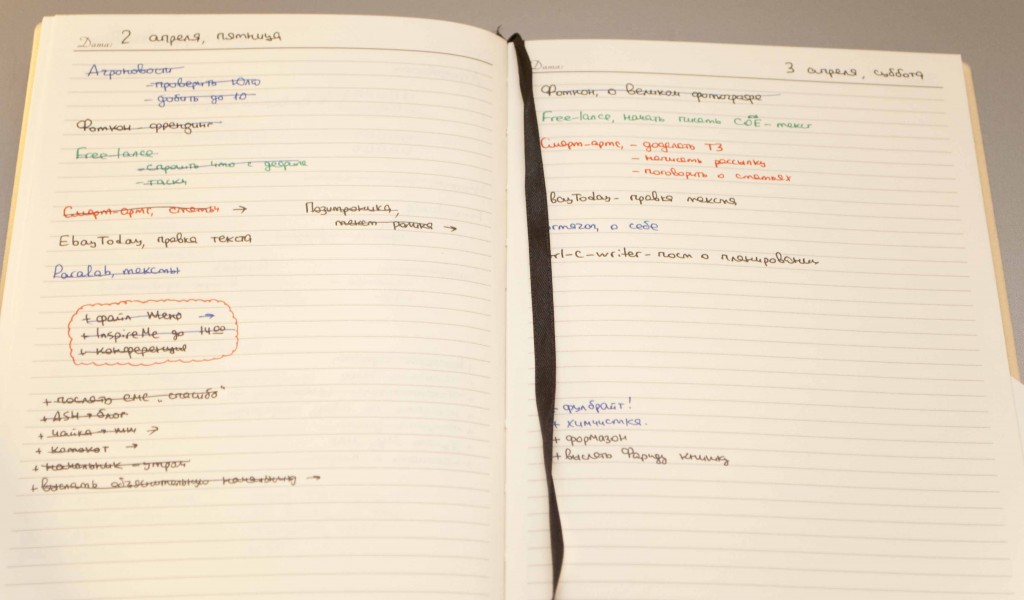 Дата: 2 апреля, пятница
Агроновости
- проверить Юлю
- добить до 10
Фоткон - френдинг
Free-lance
- спросить что с
- таски
Смарт-артс, статьи →
Позитроника,
текст ролика →
EbayToday, правка текста
Paralab, тексты
+ файл Жено →
+ InspireMe до 14 00
+ конференция
+ послать смс „спасибо"
+ ASH → блог
+ чайка →
+ комокот →
+ начальник - утром
+ выслать объяснительную начальнику →
Дата: 3 апреля, суббота
Фоткон, о великом фотографе
Free-lance, начать писать СОЕ - текст
Смарт-артс, - доделать ТЗ
- написать рассылку
- поговорить о статьях
bayToday - правка текста
о себе
rl-c-writer - пост о планировании
- фулбрайт!
+ химчистка.
+ формазон
+ выслать Фариду книжку